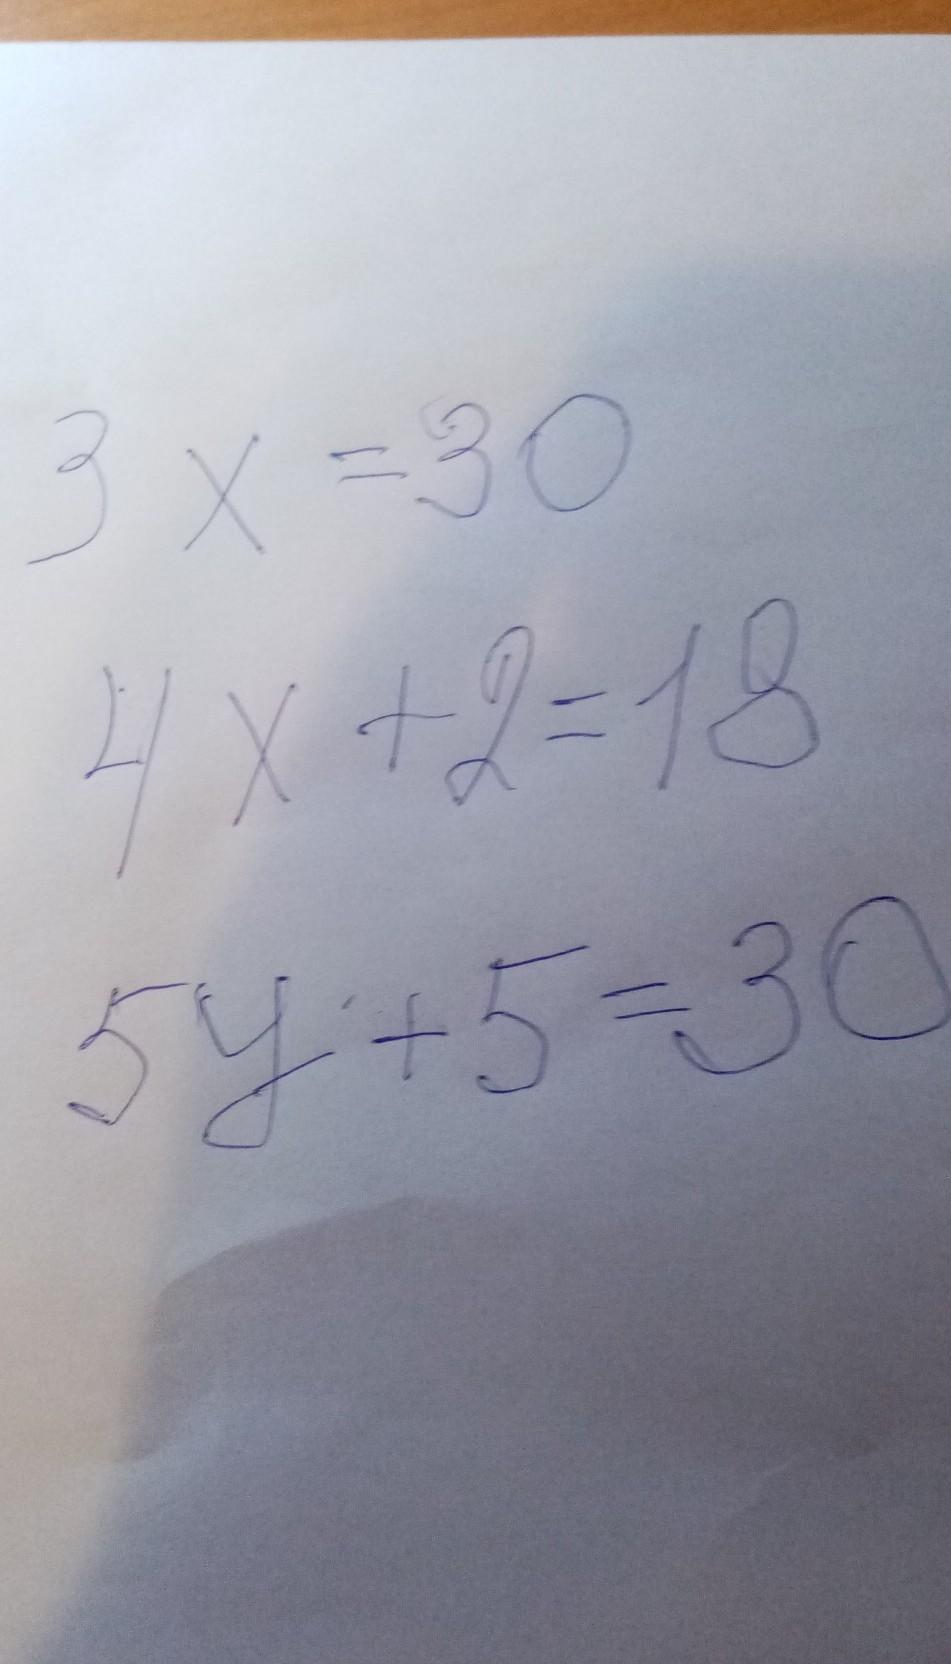 3x=30
4x+2=18
5y+5=30